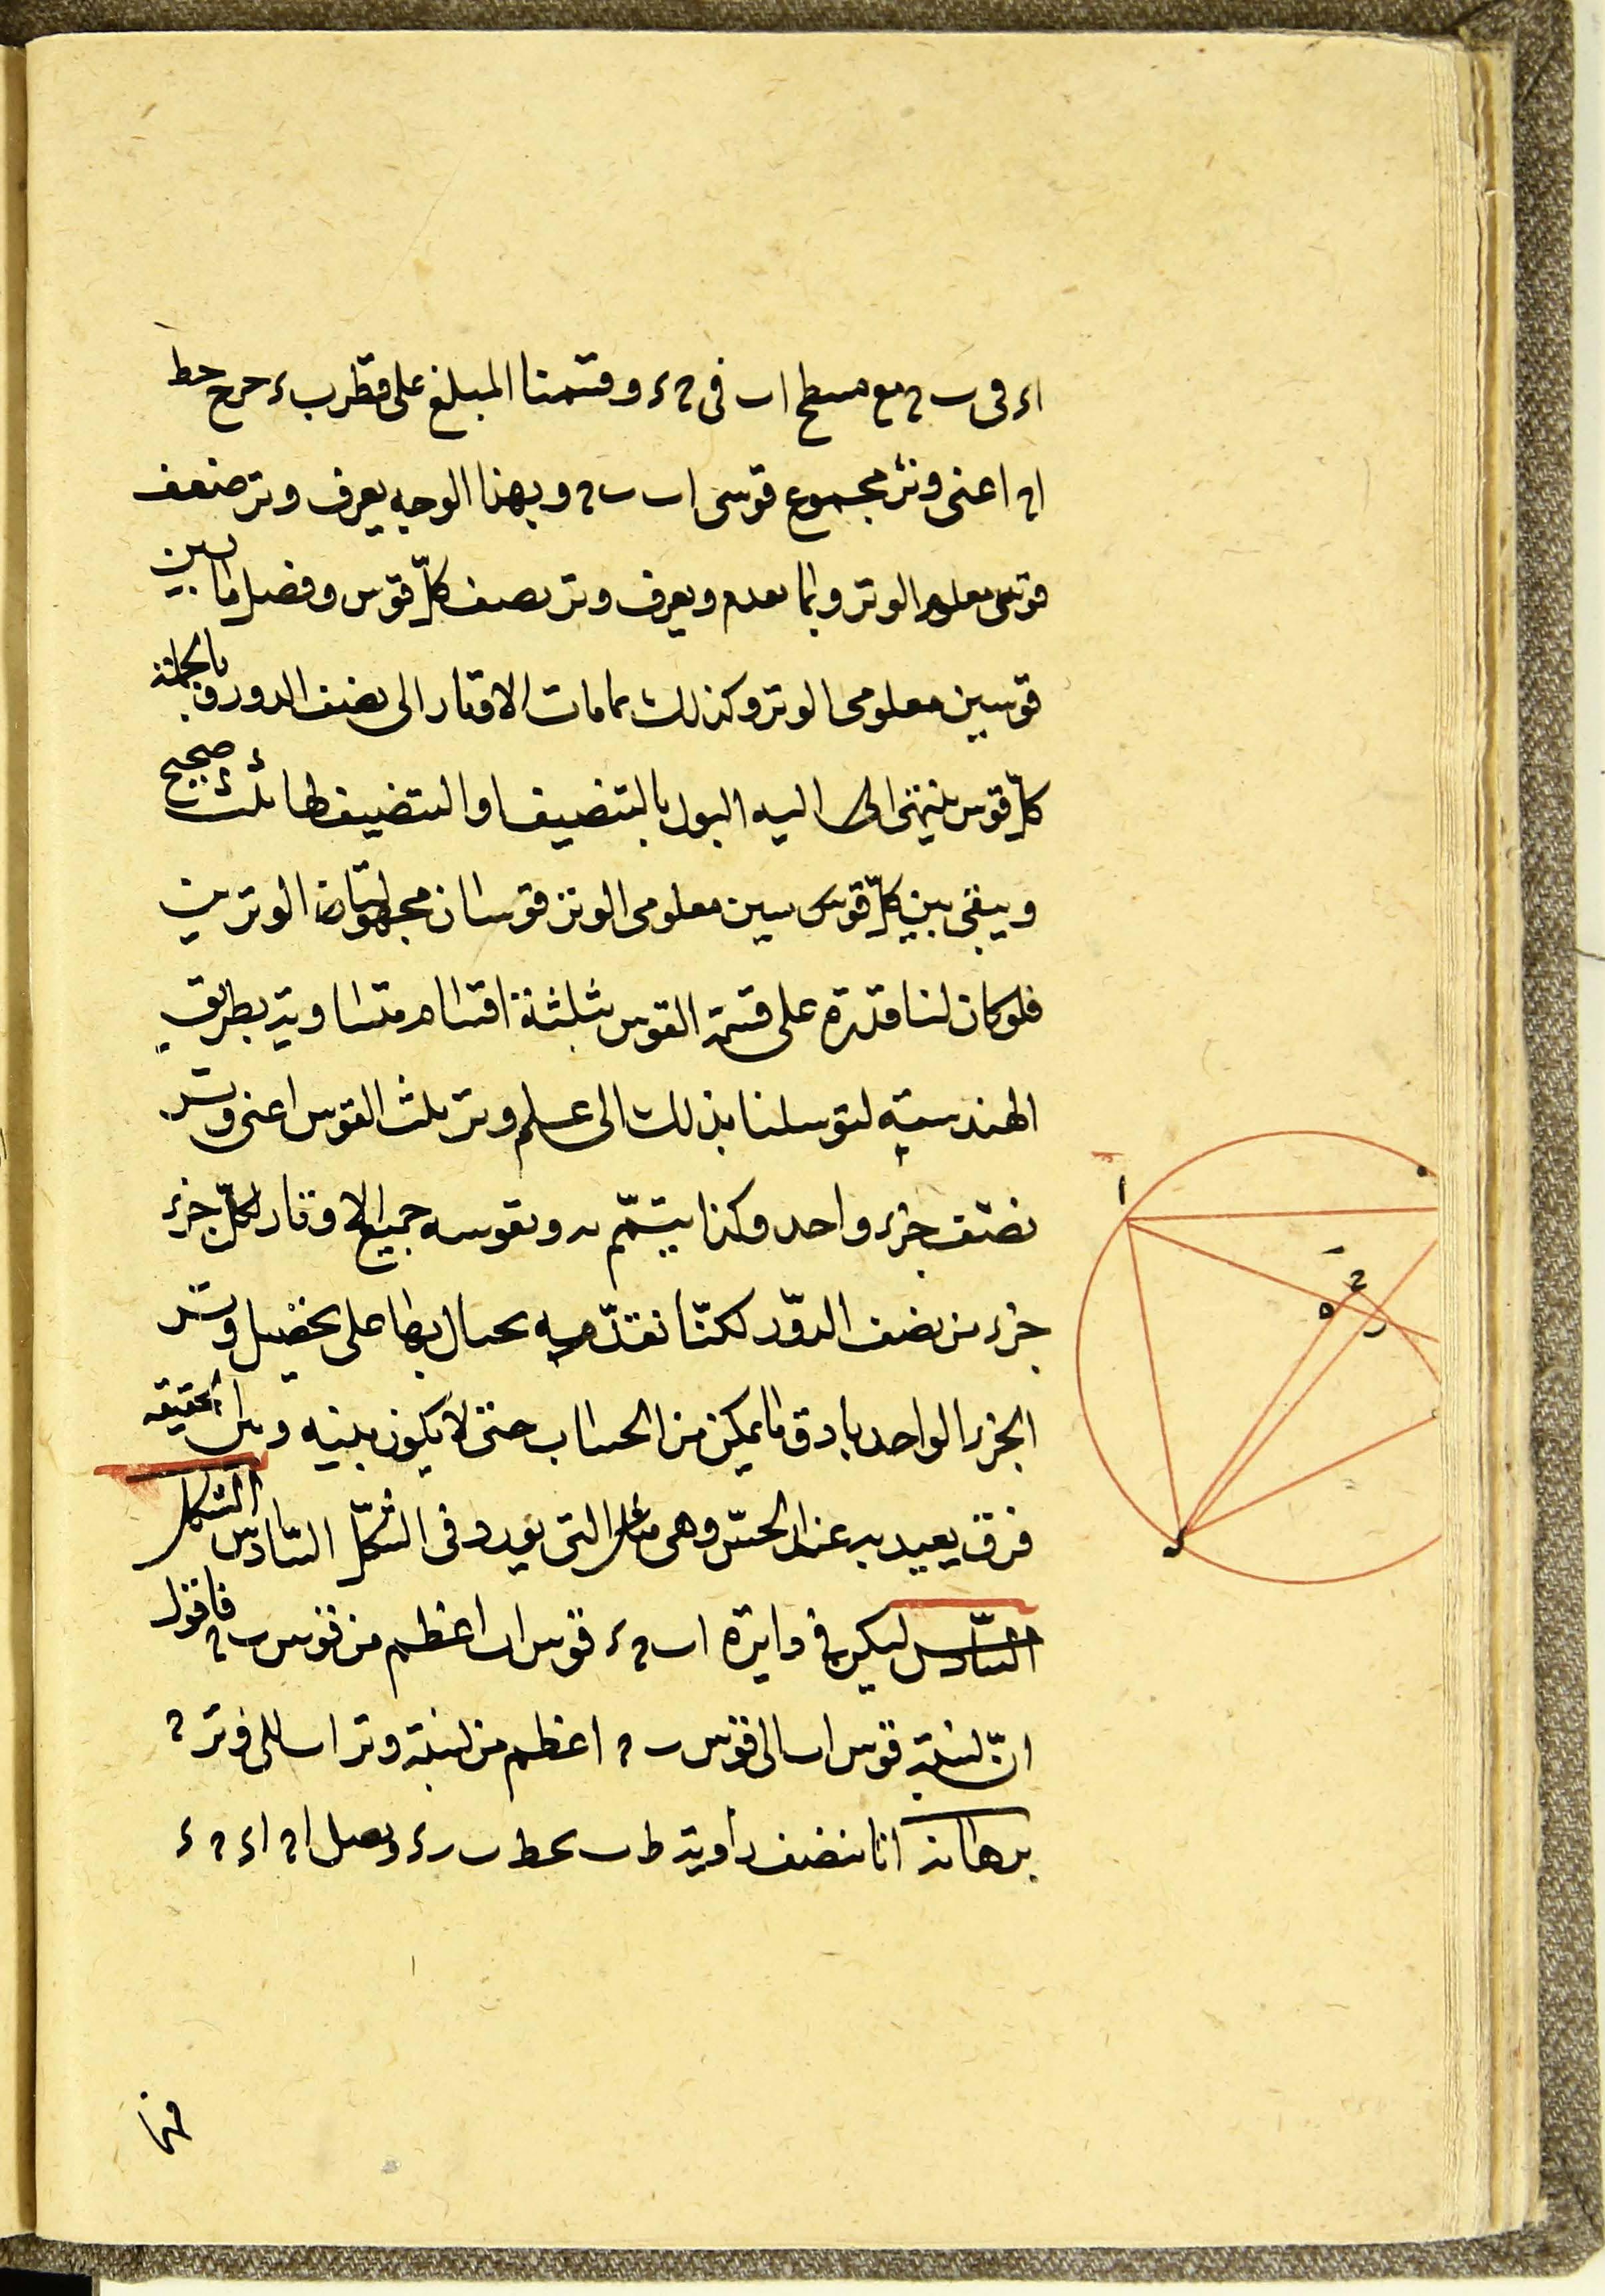 اء فى ب ح مع مسطح اب فى ح ء وقسمنا المبلغ على قطر ب ء خرج خط
اح اعنى وتر مجموع قوسى اب ب ح وبهذا الوجه يعرف وتر ضعف
قوس معلوم الوتر وبما تقدم ويعرف وتر نصف كلّ قوس وفضل ما بين
قوسين معلومى الوتر وكذلك تمامات الاوتار الى نصف الدور وبالجملة
كلّ قوس ينتهى اليه بالتنصيف او التضعيف لها ثلث صحيح
ويبقى بين كلّ قوسين معلومى الوتر قوسان مجهولتا الوترين
فلو كان لنا قدرة على قسمة القوس بثلثة اقسام متساوية بطريق
الهندسية لتوسلنا بذلك الى علم وتر ثلث القوس اعنى وتر
نصف جزء واحد وكذا يتمّم به وبقوسه جميع الاوتار لكلّ جزء
جزء من نصف الدوّر لكنّا نقدّم يحتال بها على تحصيل وتر
الجزء الواحد بادق ما يمكن من الحساب حتى لا يكون بينه وبين الحقيقه
فرق يعيد به عند الحسّ وهى التى نورد فى الشكل السّادس الشكل
السّادس ليكن فى دايرة اب ح ء قوس اب اعظم من قوس ب ح فاقول
انّ نسبة قوس اب الى قوس ب ح اعظم من نسبة وتر اب الى وتر ح
برهانه انا ننصف زاوية ط ب بخط ب ر ء ونصل اح اء ح ء
ا
ح
ه
ر
ء